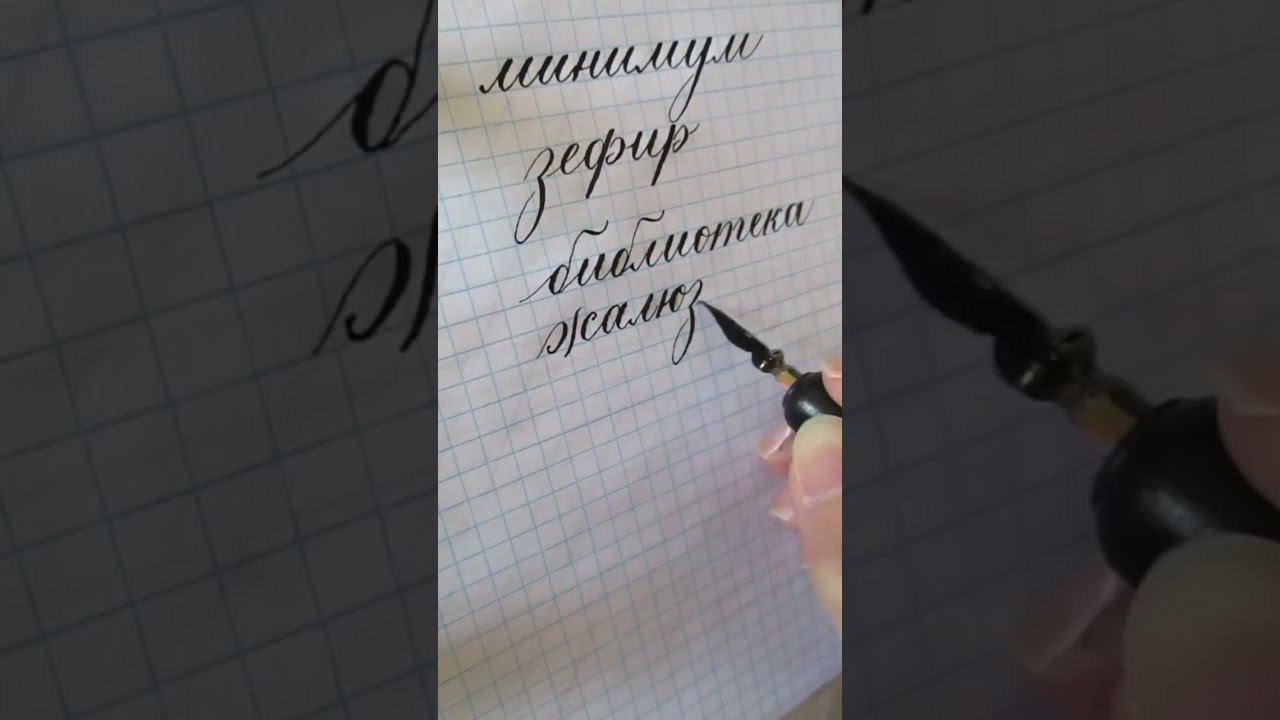 минимум
зефир
библиотека
жалюз